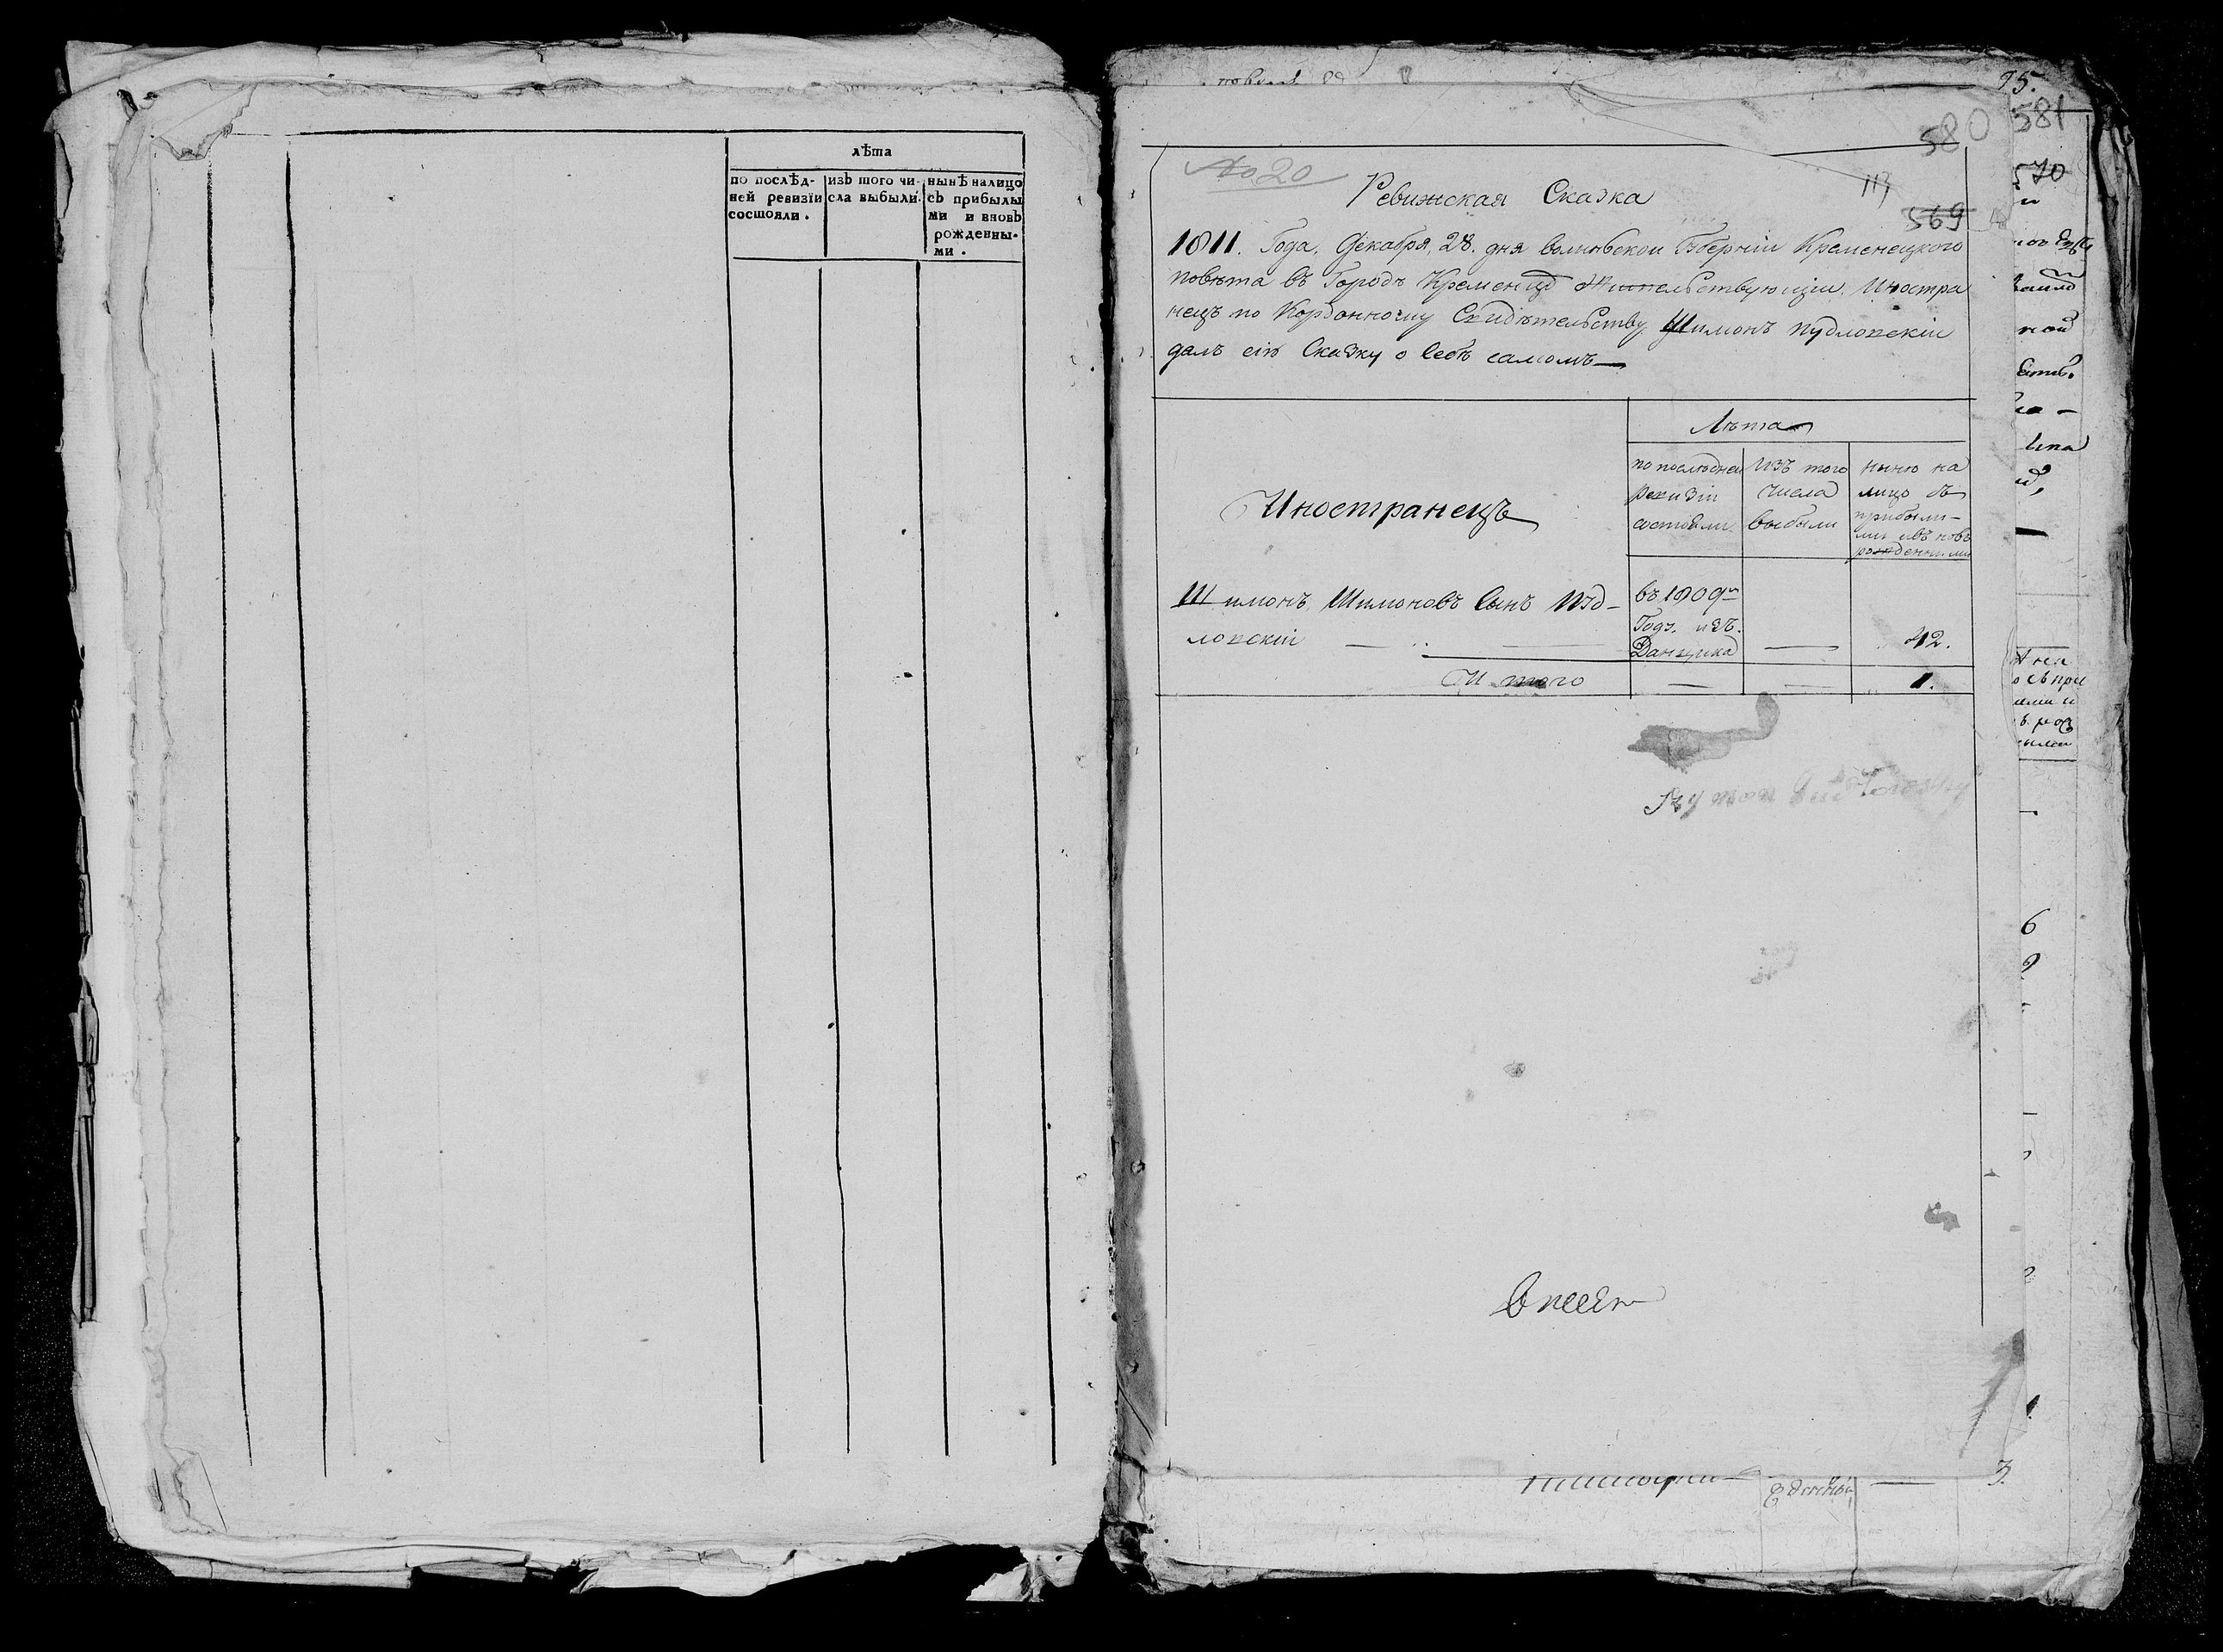 лѣта
по послѣд-
ней ревизіи
состояли.
изъ того чи-
сла выбыли.
нынѣ налицо
съ прибылы
ми и вновь
рожденны-
ми.
95.
580 581
No 20
570
Ревижская Сказка
569
1811. Года, Декабря, 28. дня волынской Губерніи Кременецкого
повѣта въ Городѣ Кременцѣ Жительствующіи. Иностра
нецъ по Кордонному Свидѣтельству Шимонъ Пудловскіи
далъ сію Сказку о Себѣ самомъ —
Лѣта
по послѣднеи
ревизіи
состояли
изъ того
числа
выбыли
нынѣ на
лицо съ
прибылы-
ми и въ новь
рожденными
Иностранецъ
Шимонъ Шимоновъ Сынъ Пуд-
ловскіи
въ 1809м
Году. изъ.
Данцика
— 42.
И того — — 1.
Szymon
6
9
3.